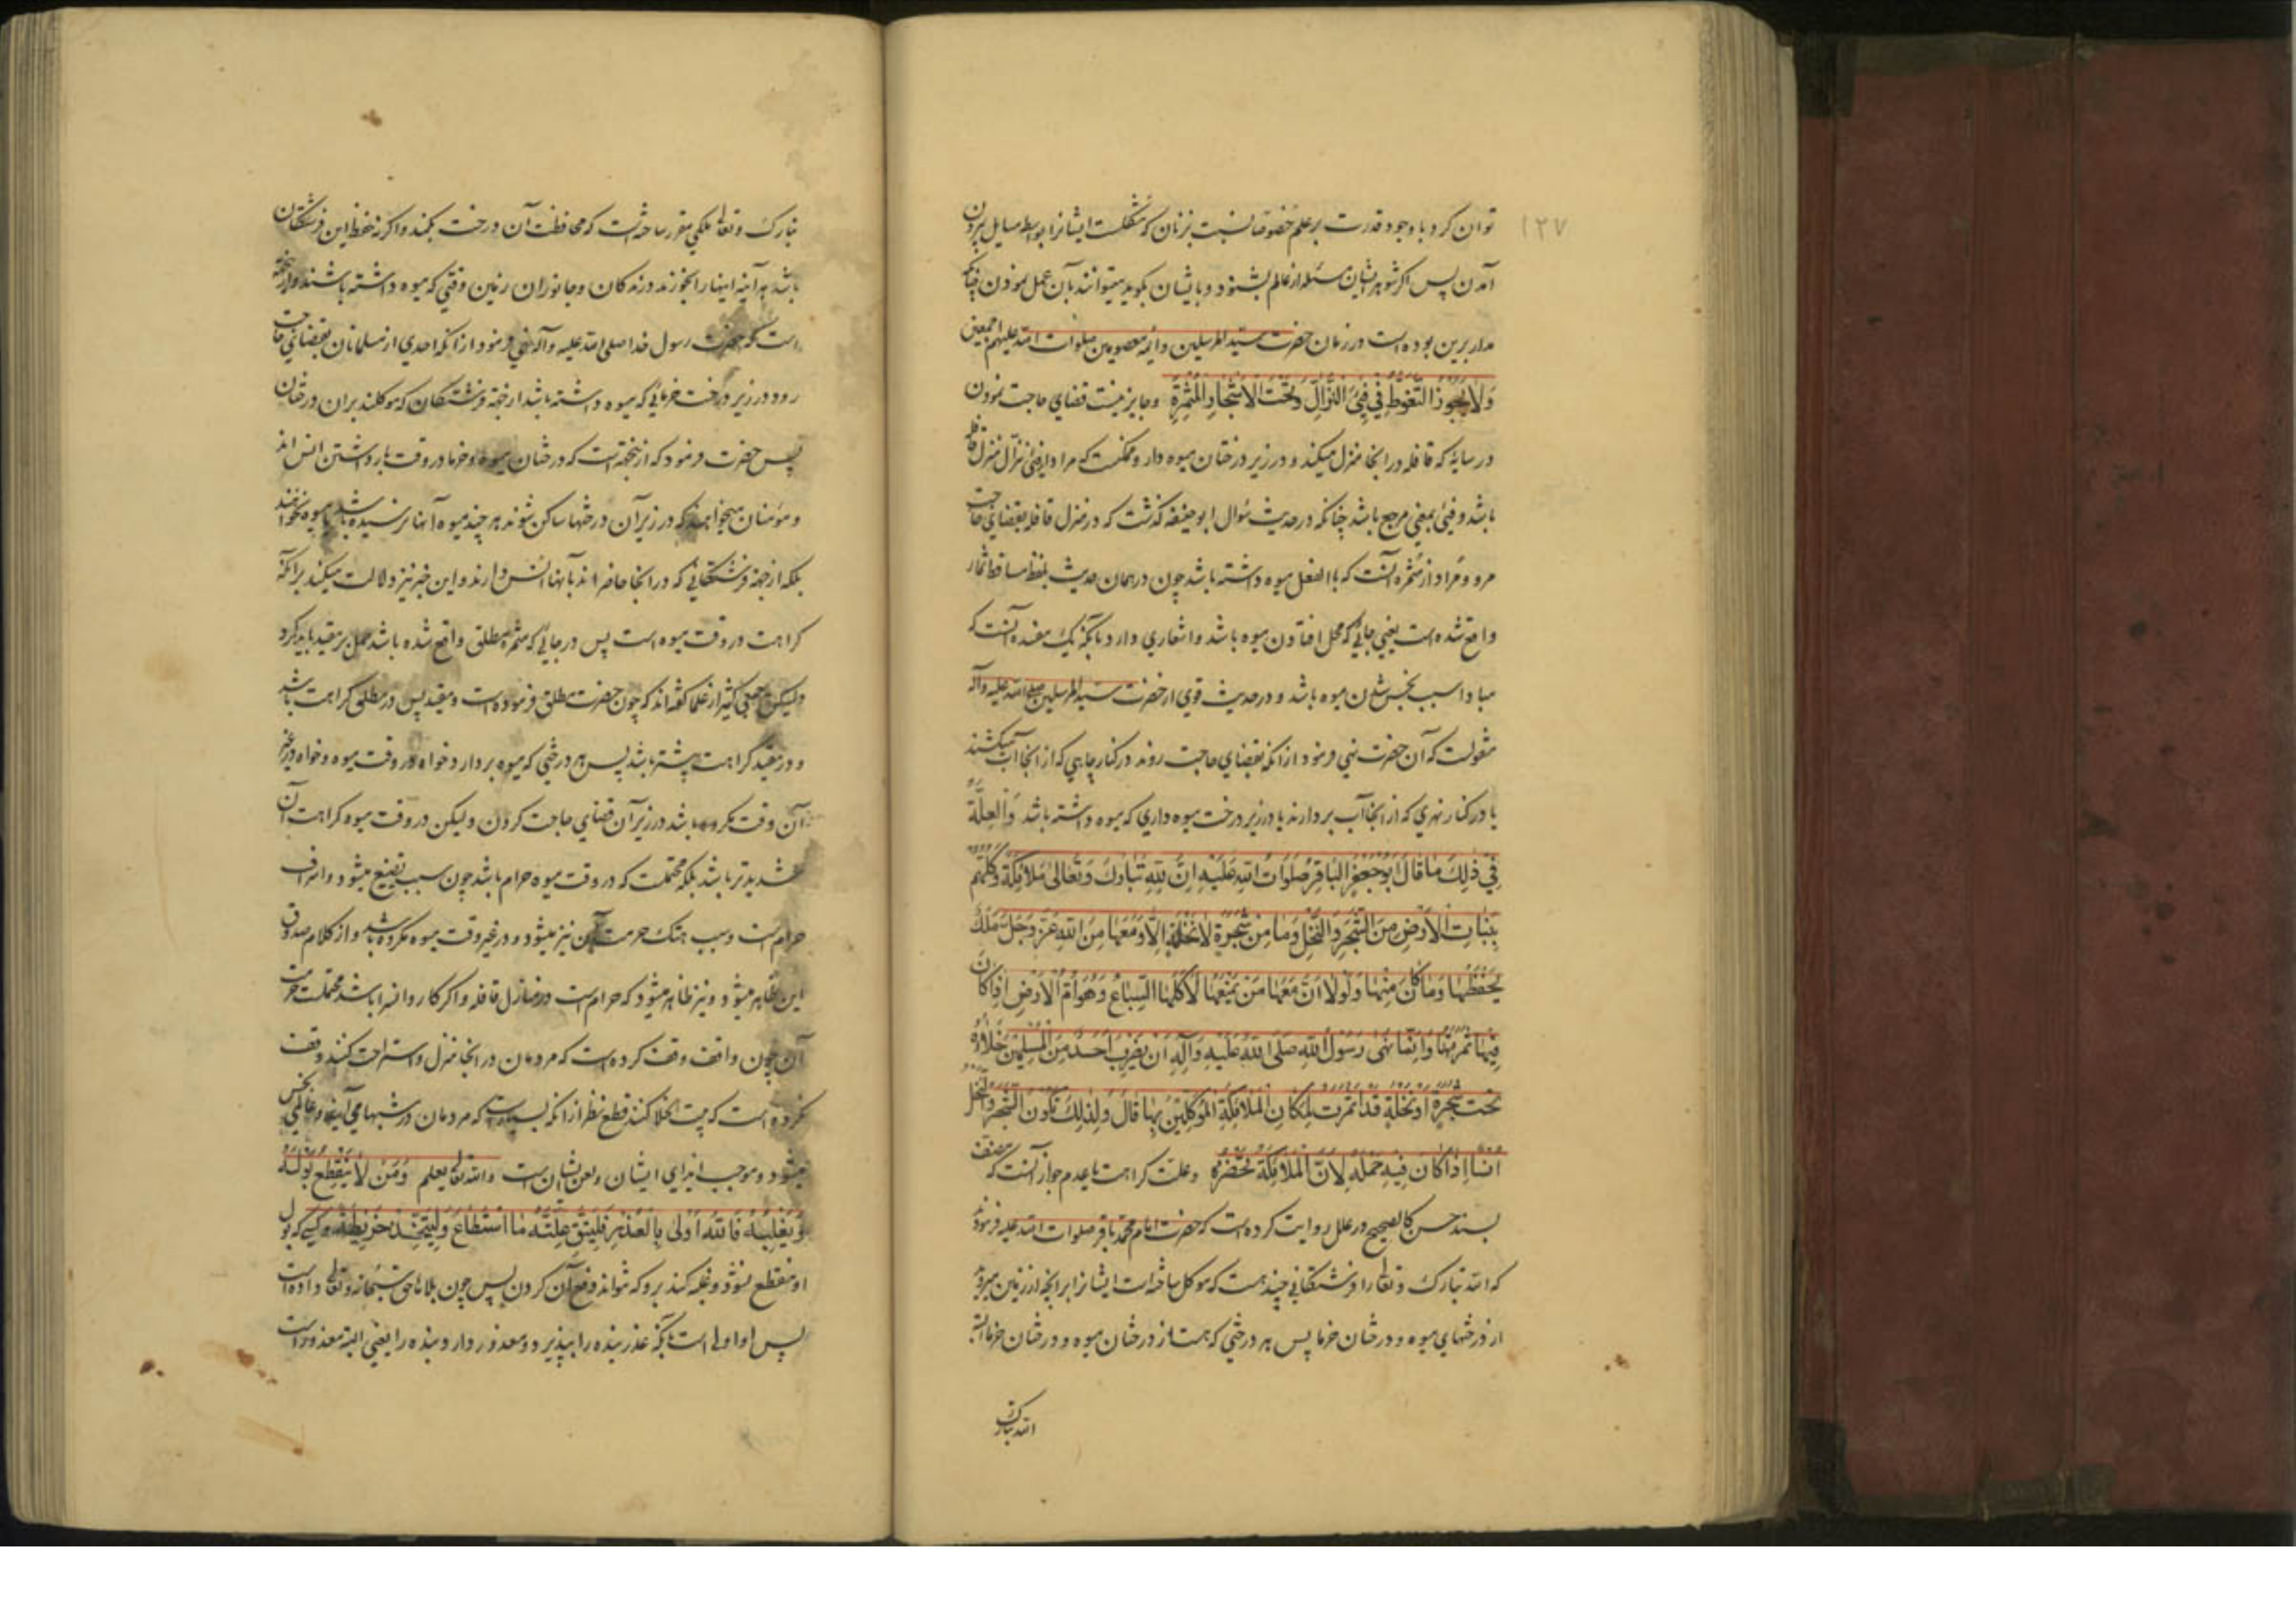 ۱۲۷
توان کرد با وجود قدرت بر علم خصوصا نسبت بزنان که مشکلست ایشانرا بواسطه مسایل بیرون
آمدن پس اگر شوهر ایشان مسئله از عالم بشنود و بایشان بگوید میتوانند بآن عمل نمودن چنانکه
مدار برین بوده است در زمان حضرت سید المرسلین و ائمه معصومین صلوات الله علیهم اجمعین
وَلَا يَجُوزُ التَّغَوُّطُ فِي فَيْءِ النُّزَّالِ وَتَحْتَ الْأَشْجَارِ الْمُثْمِرَةِ و جایز نیست قضای حاجت نمودن
در سایهٔ که قافله در انجا منزل میکند و در زیر درختان میوه دار و ممکنست که مراد از فئ نزال منزل قافله
باشد و فئ بمعنی مرجع باشد چنانکه در حدیث سؤال ابو حنیفه گذشت که در منزل قافله بقضای حاجت
مرو و مراد از مثمره آنست که بالفعل میوه داشته باشد چون در همان حدیث بلفظ مساقط ثمار
واقع شده است یعنی جائی که محل افتادن میوه باشد و اشعاری دارد بآنکه یک مفسده آنست که
مبادا سبب نجس شدن میوه باشد و در حدیث قوی از حضرت سید المرسلین صلی الله علیه وآله
منقولست که آن حضرت نهی فرمود از انکه بقضای حاجت روند در کنار چاهی که از انجا آب میکشند
یا در کنار نهری که از انجا آب بردارند یا در زیر درخت میوه داری که میوه داشته باشد وَالْعِلَّةُ
فِي ذٰلِكَ مَا قَالَ أَبُو جَعْفَرٍ الْبَاقِرُ صَلَوَاتُ اللهِ عَلَيْهِ إِنَّ لِلّٰهِ تَبَارَكَ وَتَعَالَى مَلَائِكَةً وَكَّلَهُمْ
بِنَبَاتِ الْأَرْضِ مِنَ الشَّجَرِ وَالنَّخْلِ وَمَا مِنْ شَجَرَةٍ لَا نَخْلَةٍ إِلَّا وَمَعَهَا مِنَ اللهِ عَزَّ وَجَلَّ مَلَكٌ
يَحْفَظُهَا وَمَا كَانَ مِنْهَا وَلَوْلَا أَنَّ مَعَهَا مَنْ يَمْنَعُهَا لَأَكَلَهَا السِّبَاعُ وَهَوَامُّ الْأَرْضِ إِذَا كَانَ
فِيهَا ثَمَرَتُهَا وَإِنَّمَا نَهَى رَسُولُ اللهِ صَلَّى اللهُ عَلَيْهِ وَآلِهِ أَنْ يَضْرِبَ أَحَدٌ مِنَ الْمُسْلِمِينَ خَلَاءَهُ
تَحْتَ شَجَرَةٍ أَوْ نَخْلَةٍ قَدْ أَثْمَرَتْ لِمَكَانِ الْمَلَائِكَةِ الْمُوَكَّلِينَ بِهَا قَالَ وَلِذٰلِكَ تَكُونُ الشَّجَرُ وَالنَّخْلُ
أُنْسًا إِذَا كَانَ فِيهِ حَمْلُهُ لِأَنَّ الْمَلَائِكَةَ تَحْضُرُهُ و علت کراهت یا عدم جواز آنست که مصنف
بسند حسن کالصحیح در علل روایت کرده است که حضرت امام محمد باقر صلوات الله علیه فرمودند
که الله تبارک و تعالی را فرشتگانی چند هست که موکل ساخته است ایشانرا بر انچه از زمین میروید
از درختهای میوه و درختان خرما پس هر درختی که هست از درختان میوه و درختان خرما البته
الله تبارک
تبارک و تعالی ملکی مقرر ساخته است که محافظت آن درخت بکند و اگر نه حفظ این فرشتگان
باشد هر آینه اینها را بخورند درندگان و جانوران زمین وقتی که میوه داشته باشند و از این جهة
است که حضرت رسول خدا صلی الله علیه وآله نهی فرمود از انکه احدی از مسلمانان بقضای حاجت
رود در زیر درخت خرمائی که میوه داشته باشد از جهة فرشتگان که موکلند بران درختان
پس حضرت فرمود که از ینجهة است که درختان میوه و خرما در وقت بار داشتن انس اند
و مؤمنان میخواهند که در زیر آن درختها ساکن شوند هر چند میوه آنها نرسیده باشد یا میوه نخواهند
بلکه از جهة فرشتگانی که در انجا حاضر اند بآنها انس دارند و این خبر نیز دلالت میکند بر آنکه
کراهت در وقت میوه است پس در جائی که مثمره مطلق واقع شده باشد حمل بر مقید باید کرد
ولیکن جمعی کثیر از علما گفته اند که چون حضرت مطلق فرموده است و مقید پس در مطلق کراهت باشد
و در مقید کراهت بیشتر باشد پس هر درختی که میوه بر دارد خواه در وقت میوه و خواه در غیر
آن وقت مکروه باشد در زیر آن قضای حاجت کردن ولیکن در وقت میوه کراهت آن
شدیدتر باشد بلکه محتملست که در وقت میوه حرام باشد چون سبب تضییع میشود و اسراف
حرام است و سبب هتک حرمت آن نیز میشود و در غیر وقت میوه مکروه باشد و از کلام صدوق
این ظاهر میشود و نیز ظاهر میشود که حرام است در منازل قافله و اگر کاروانسرا باشد محتملست حرمت
آن چون واقف وقف کرده است که مردمان در انجا منزل و استراحت کنند وقف
نکرده است که بیت الخلا کنند قطع نظر از انکه بسیار است که مردمان در شبها می آیند و غافل نجس
میشود و موجب ایذای ایشان و لعن ایشان است والله تعالی یعلم وَمَنْ لَا يَنْقَطِعُ بَوْلُهُ
وَيَغْلِبُهُ فَاللهُ أَوْلَى بِالْعُذْرِ فَلْيَتَّقِ عِلَّتَهُ مَا اسْتَطَاعَ وَلْيَتَّخِذْ خَرِيطَةً و کسی که بول
او منقطع نشود و غلبه کند برو که نتواند دفع آن کردن پس چون بلا را حق سبحانه و تعالی داده است
پس او اولی است بآنکه عذر بنده را بپذیرد و معذور دارد بنده را یعنی البته معذور است